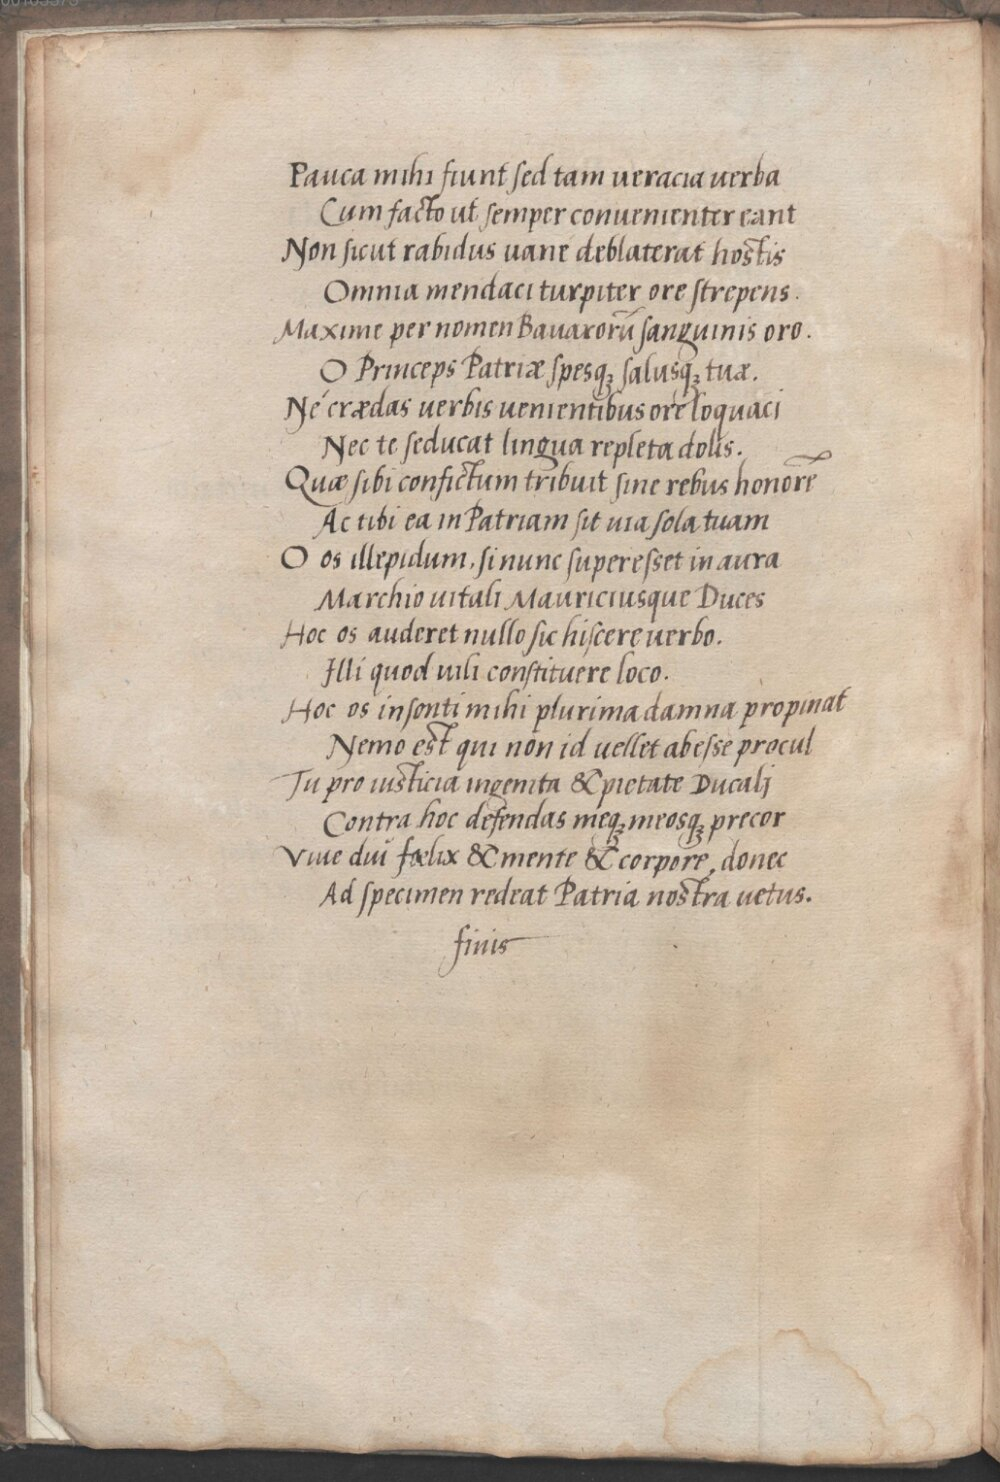 Pauca mihi fiunt sed tam ueracia uerba
Cum facto ut semper conuenienter eant
Non sicut rabidus uane deblaterat hostis
Omnia mendaci turpiter ore strepens.
Maxime per nomen Bauarorū sanguinis oro.
O Princeps Patriæ spesqꝫ salusqꝫ tuæ.
Ne crædas uerbis uenientibus ore loquaci
Nec te seducat lingua repleta dolis.
Quæ sibi confictum tribuit sine rebus honorē
Ac tibi ea in Patriam sit uia sola tuam
O os illepidum, si nunc superesset in aura
Marchio uitali Mauriciusque Duces
Hoc os auderet nullo sic hiscere uerbo.
Illi quod uili constituere loco.
Hoc os insonti mihi plurima damna propinat
Nemo est qui non id uellet abesse procul
Tu pro iusticia ingenita & pietate Ducali
Contra hoc defendas meqꝫ meosqꝫ precor
Viue diu fœlix & mente & corpore, donec
Ad specimen redeat Patria nostra uetus.
finis